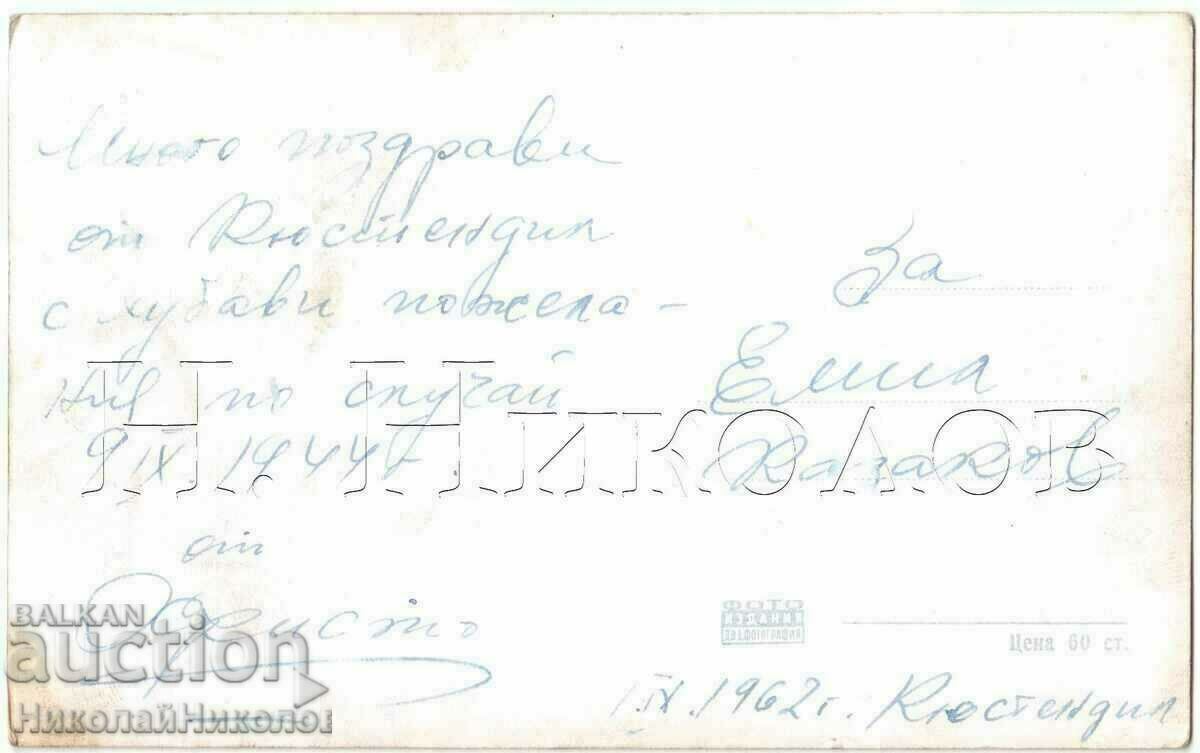 Много поздрави
от Кюстендил
с хубави пожела-
ния по случай
9.IX.1944 г.
от
Христо
за
Емил
Казаков
ФОТО
ИЗДАНИЯ
ДВ. ФОТОГРАФИЯ
Цена 60 ст.
1.IX.1962 г. Кюстендил
Н. Николов
BALKAN
auction
НиколайНиколов